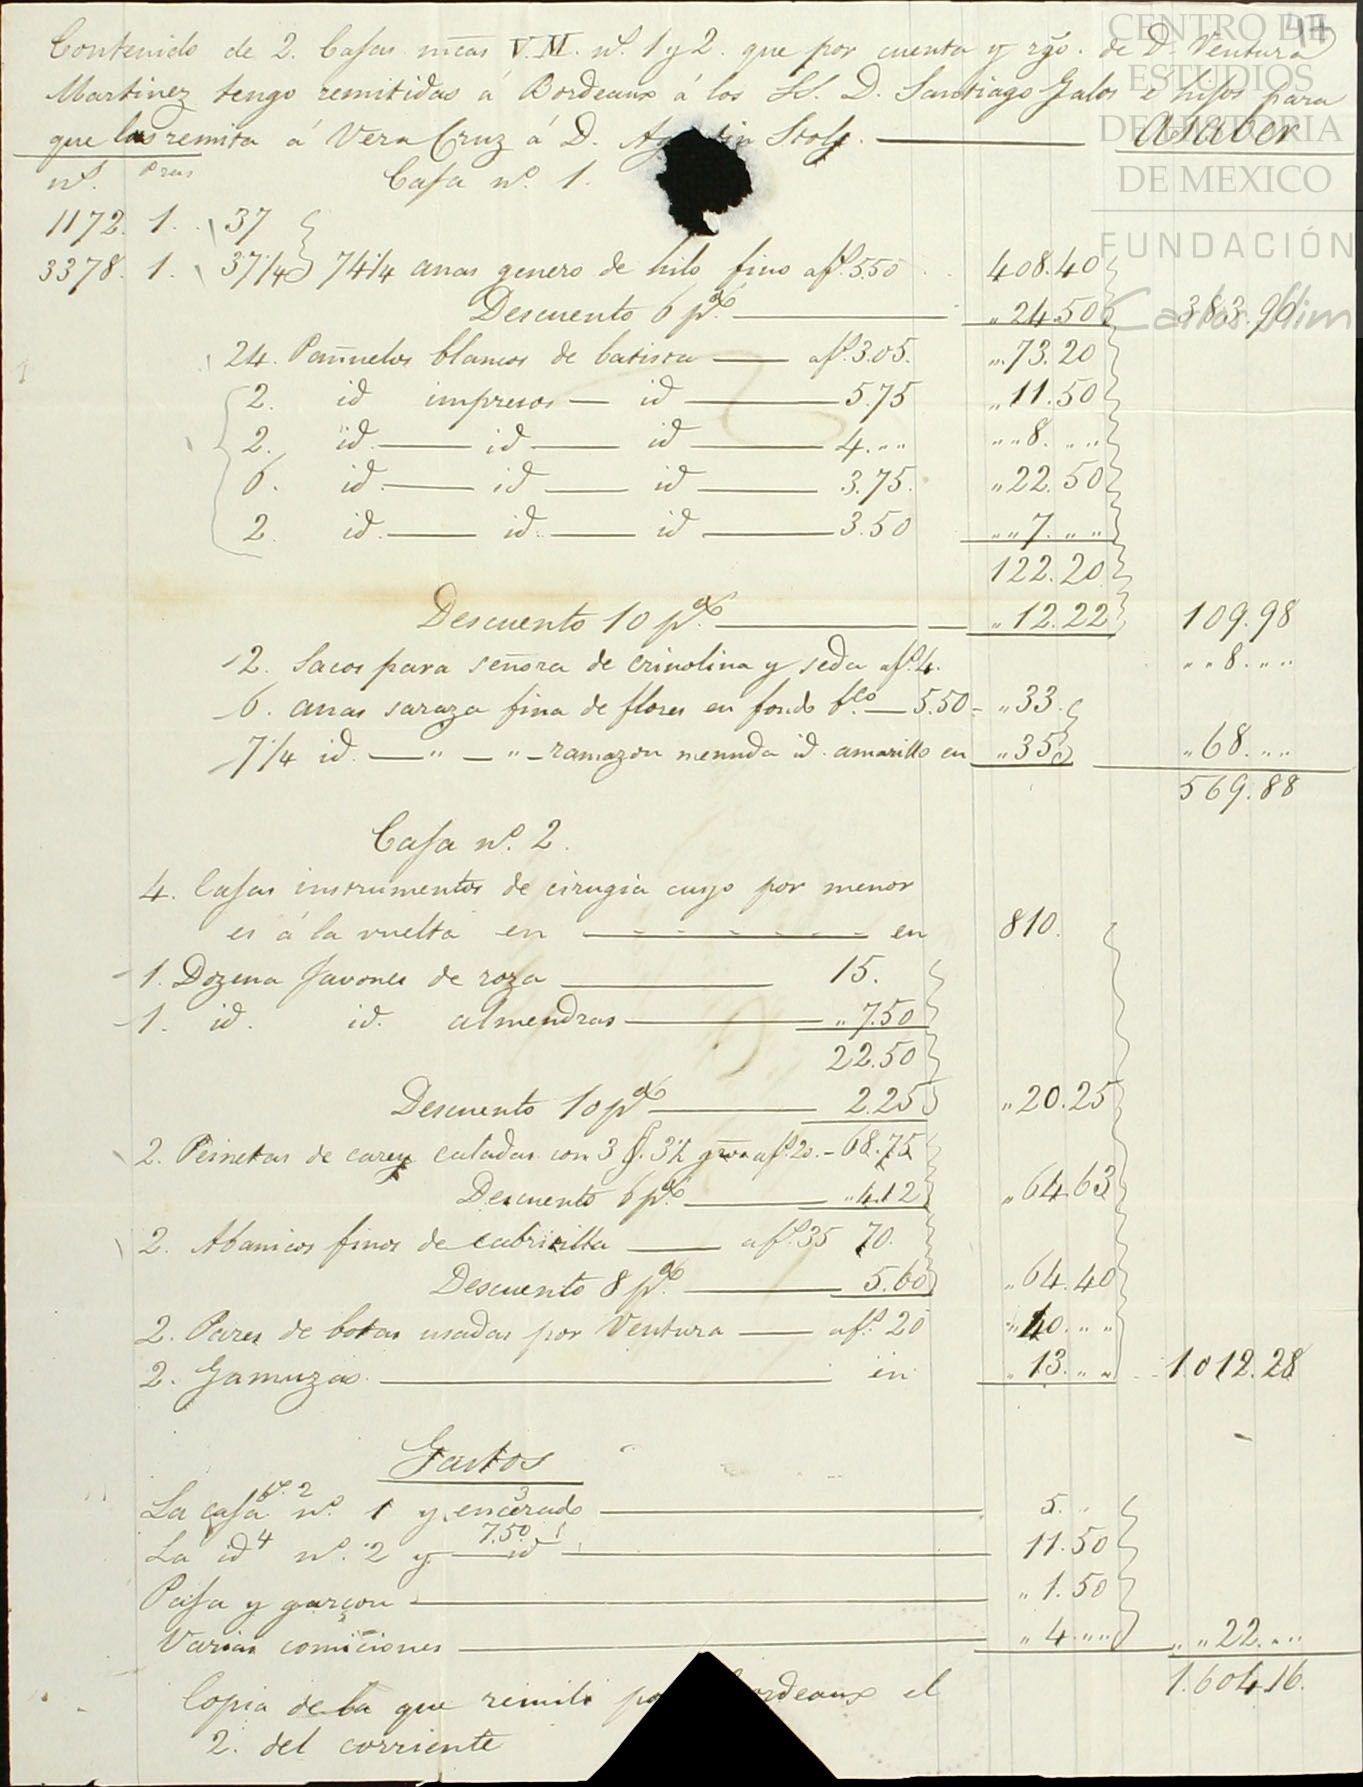 44
CENTRO DE
ESTUDIOS
DE HISTORIA
DE MEXICO
FUNDACIÓN
Carlos Slim
Contenido de 2. Cajas mcas V.M. nº. 1 y 2. que por cuenta y rgo. de D. Ventura
Martinez tengo remitidas á Bordeaux á los SS. D. Santiago Galos é hijos para
que las remita á Vera Cruz á D. Stolp. Asaber
nº. Pzas Caja nº. 1.
1172. 1. 37
3378. 1. 37 1/4 74 1/4 anas genero de hilo fino a fº. 5.50 408.40
Descuento 6 p% 24.50 383.90
24. Pañuelos blancos de batista a fº. 3.05. 73.20
2. id impresos id 5.75 11.50
2. id. id id 4.. 8...
6. id. id id 3.75. 22.50
2 id. id. id 3.50 7...
122.20
Descuento 10 p% 12.22 109.98
2. Sacos para señora de crinolina y seda a fº. 4. 8...
6. anas saraza fina de flores en fondo bco 5.50 33.
7 1/4 id. " " ramazon menuda id. amarillo en 35 68...
569.88
Caja nº. 2.
4. Cajas instrumentos de cirugia cuyo por menor
es á la vuelta en en 810.
1. Dozena javones de roza 15.
1. id. id. almendras 7.50
22.50
Descuento 10 p% 2.25 20.25
2. Peinetas de carey caladas con 3 a fº. 20. 68.75
Descuento 6 p% 4.12 64.63
2. Abanicos finos de cabritilla a fº. 35 70.
Descuento 8 p% 5.60 64.40
2. Pares de botas usadas por Ventura a fº. 20 40...
2. Gamuzas en 13... 1.012.28
Gastos
La caja fº. 2 nº. 1 y encerado 3 5..
La id 4 nº. 2 y 7.50 id 11.50
Paja y garçon 1.50
Varias comiciones 4... 22...
1.604.16.
Copia de la que remiti Bordeaux el
2. del corriente